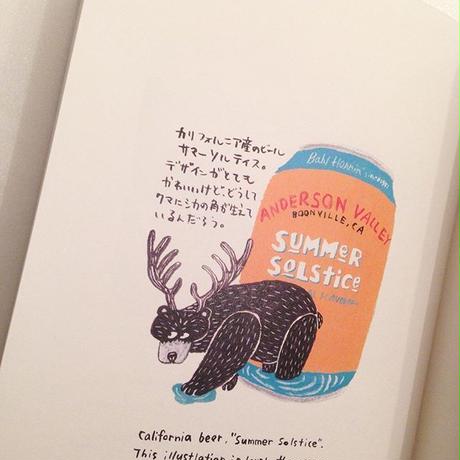 カリフォルニア産のビール
サマーソルティス。
デザインがとても
かわいいけど、どうして
クマにシカの角が生えて
いるんだろう。
Bahl Hornin'
ANDERSON VALLEY
BOONVILLE, CA
SUMMER
SOLSTICE
California beer, "Summer Solstice".
This illustlation is